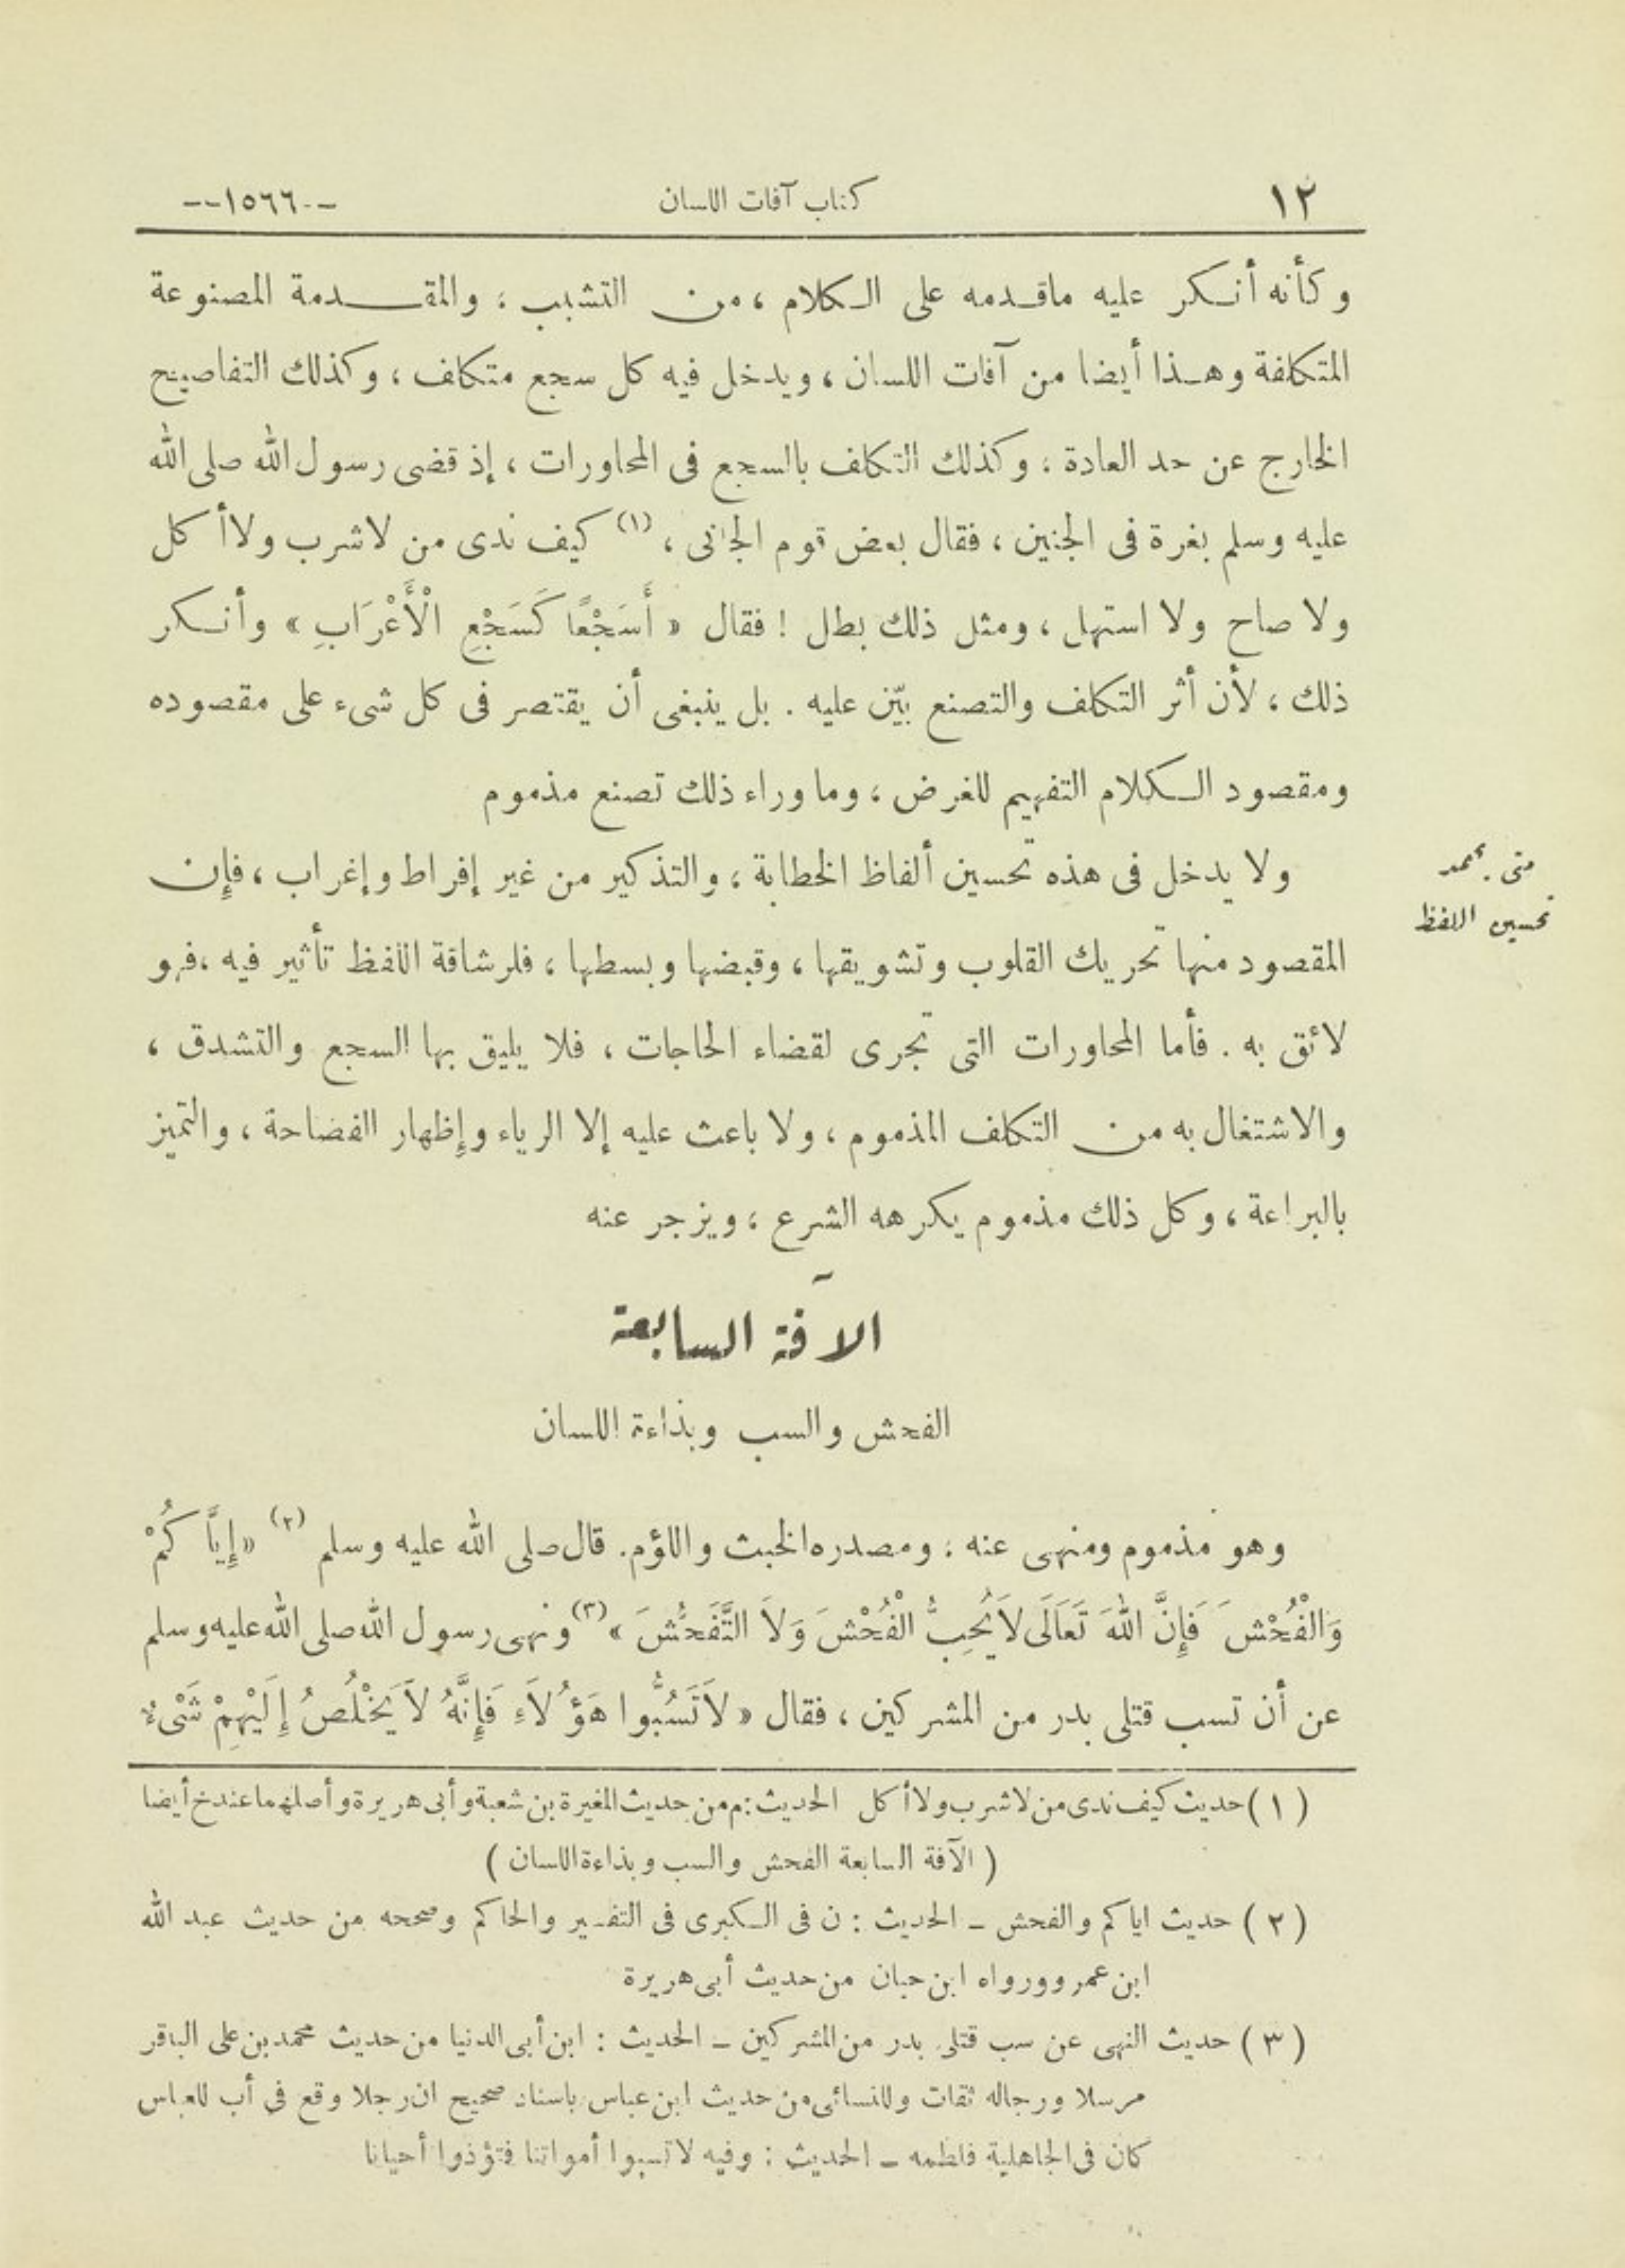 ١٢
كتاب آفات اللسان
--١٥٦٦--
وكأنه أنكر عليه ماقدمه على الكلام ، من التشبب ، والمقدمة المصنوعة
المتكلفة وهذا أيضا من آفات اللسان ، ويدخل فيه كل سجع متكلف ، وكذلك التفاصح
الخارج عن حد العادة ، وكذلك التكلف بالسجع فى المحاورات ، إذ قضى رسول الله صلى الله
عليه وسلم بغرة فى الجنين ، فقال بعض قوم الجانى ، (١) كيف ندى من لا شرب ولا أكل
ولا صاح ولا استهل ، ومثل ذلك بطل ! فقال « أَسَجْعًا كَسَجْعِ الْأَعْرَابِ » وأنكر
ذلك ، لأن أثر التكلف والتصنع بيّن عليه . بل ينبغى أن يقتصر فى كل شىء على مقصوده
ومقصود الكلام التفهيم للغرض ، وما وراء ذلك تصنع مذموم
متى يحمد
تحسين اللفظ
ولا يدخل فى هذه تحسين ألفاظ الخطابة ، والتذكير من غير إفراط وإغراب ، فإن
المقصود منها تحريك القلوب وتشويقها ، وقبضها وبسطها ، فلرشاقة اللفظ تأثير فيه ، فهو
لائق به . فأما المحاورات التى تجرى لقضاء الحاجات ، فلا يليق بها السجع والتشدق ،
والاشتغال به من التكلف المذموم ، ولا باعث عليه إلا الرياء وإظهار الفصاحة ، والتميز
بالبراعة ، وكل ذلك مذموم يكرهه الشرع ، ويزجر عنه
الآفة السابعة
الفحش والسب وبذاءة اللسان
وهو مذموم ومنهى عنه ، ومصدره الخبث واللؤم. قال صلى الله عليه وسلم (٢) « إِيَّاكُمْ
وَالْفُحْشَ فَإِنَّ اللهَ تَعَالَى لاَ يُحِبُّ الْفُحْشَ وَلاَ التَّفَحُّشَ » (٣) ونهى رسول الله صلى الله عليه وسلم
عن أن تسب قتلى بدر من المشركين ، فقال « لاَ تَسُبُّوا هَؤُلاَءِ فَإِنَّهُ لاَ يَخْلُصُ إِلَيْهِمْ شَىْءٌ
( ١ ) حديث كيف ندى من لا شرب ولا أكل الحديث : م من حديث المغيرة بن شعبة وأبى هريرة وأصلهما عند خ أيضا
( الآفة السابعة الفحش والسب وبذاءة اللسان )
( ٢ ) حديث اياكم والفحش ـ الحديث : ن فى الكبرى فى التفسير والحاكم وصححه من حديث عبد الله
ابن عمرو ورواه ابن حبان من حديث أبى هريرة
( ٣ ) حديث النهى عن سب قتلى بدر من المشركين ـ الحديث : ابن أبى الدنيا من حديث محمد بن على الباقر
مرسلا ورجاله ثقات وللنسائى من حديث ابن عباس باسناد صحيح ان رجلا وقع فى أب للعباس
كان فى الجاهلية فلطمه ـ الحديث : وفيه لا تسبوا أمواتنا فتؤذوا أحيانا